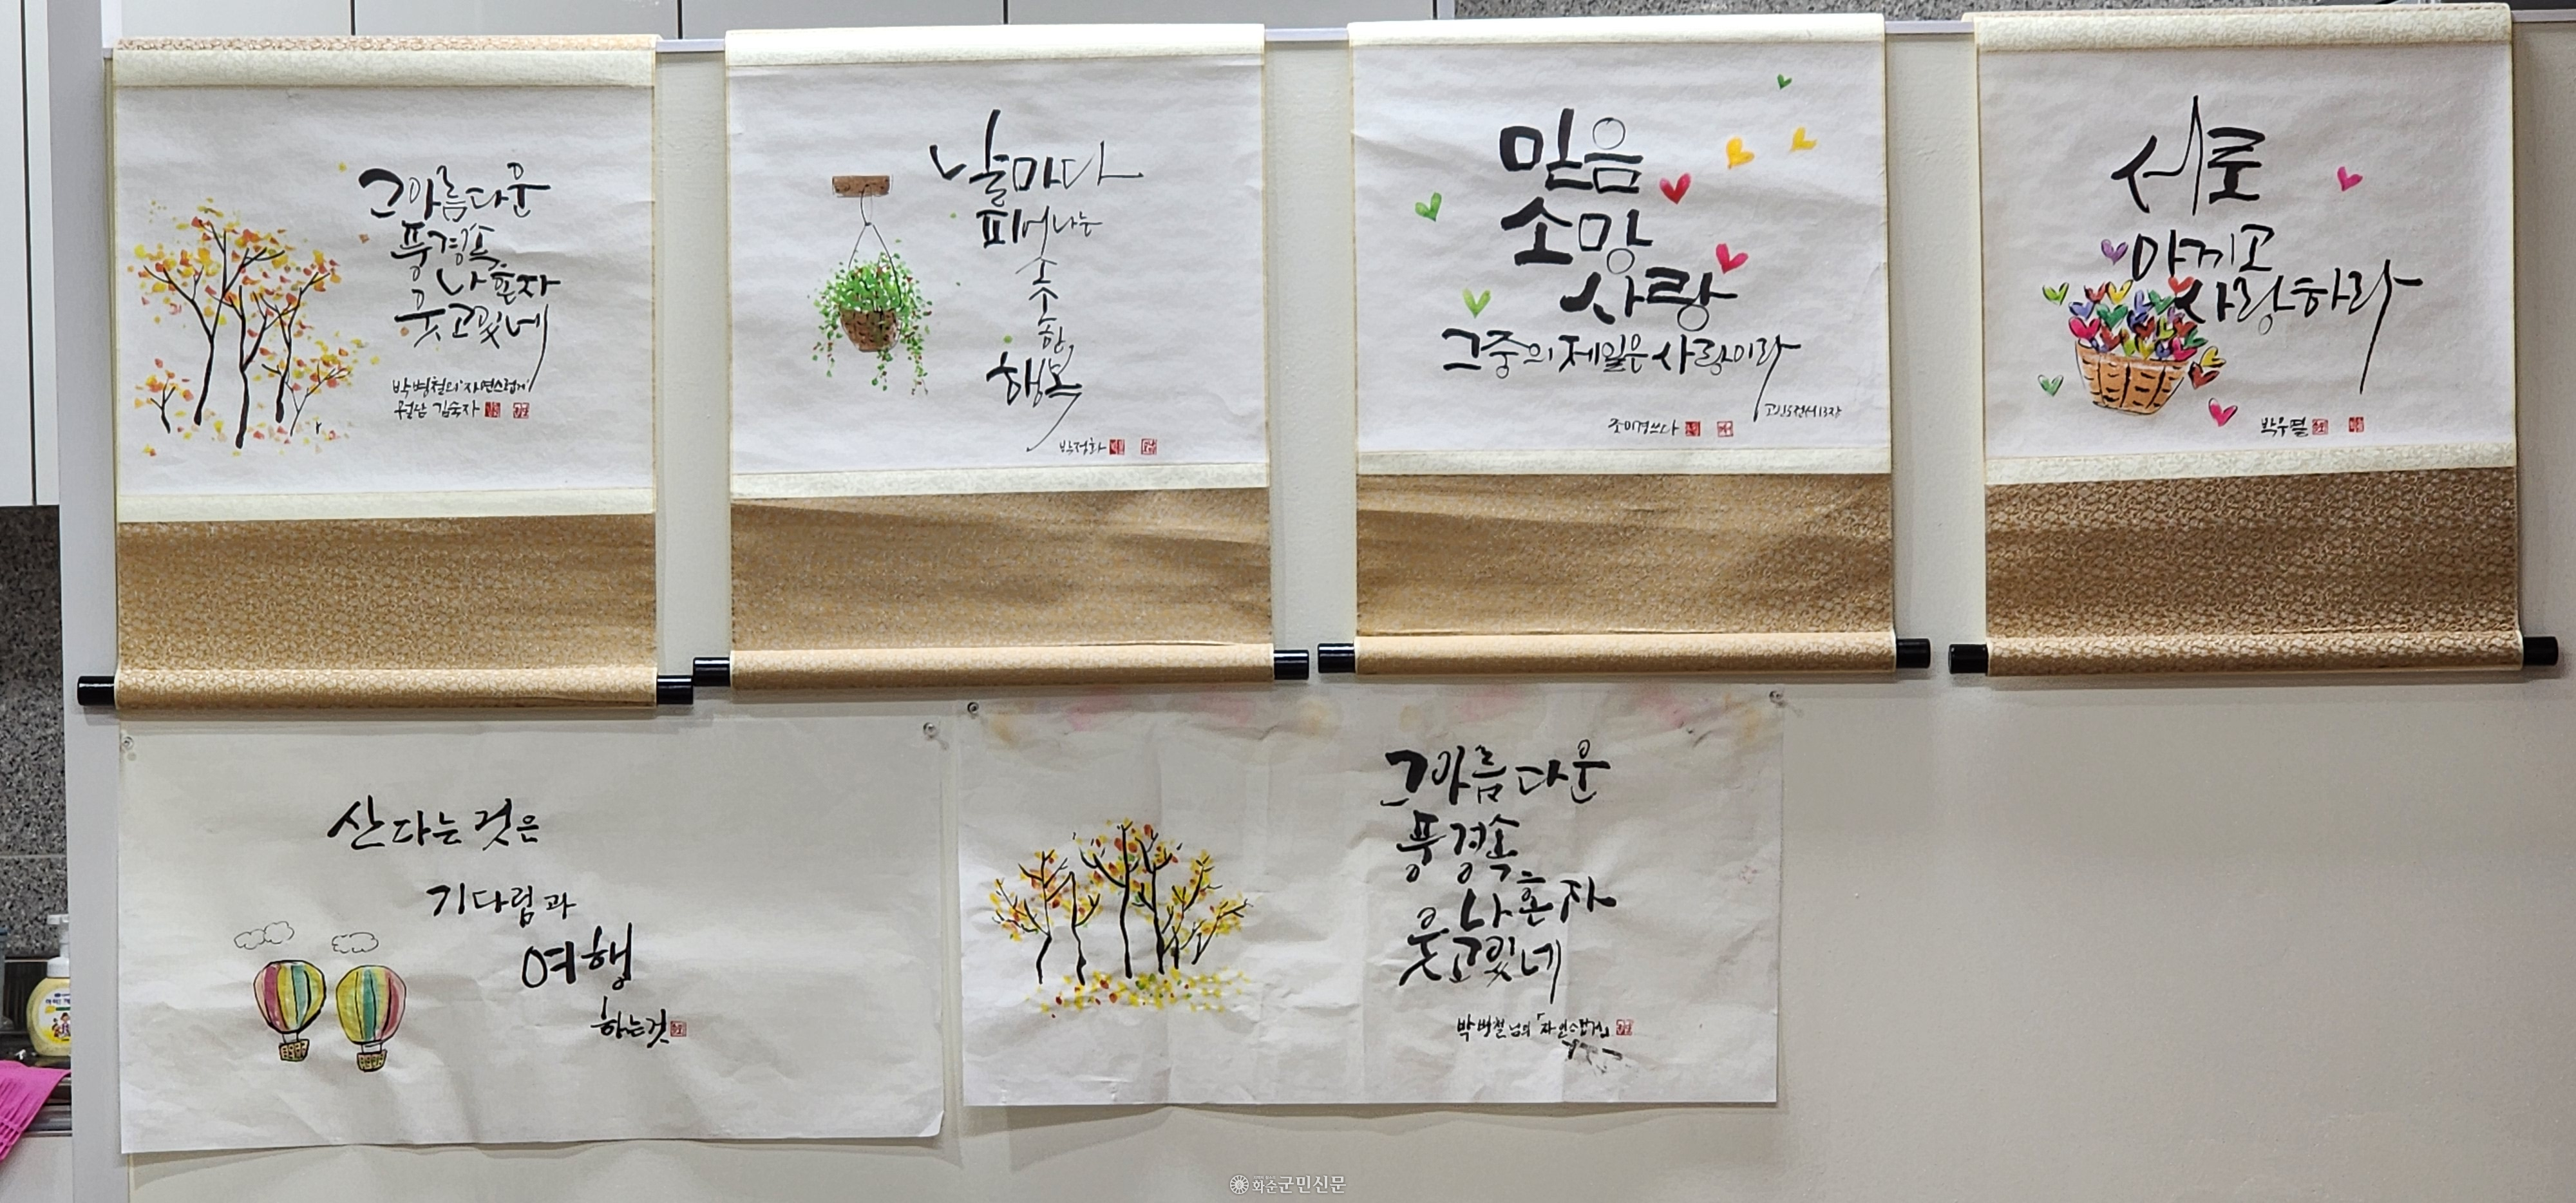 그 아름다운
풍경속
나 혼자
웃고있네
박병철의 '자연스럽게'
김숙자
날마다
피어나는
소
소
한
행복
박정화
믿음
소망
사랑
그중의 제일은 사랑이라
고린도전서13장
조미경쓰다
서로
아끼고
사랑하라
산다는 것은
기다림과
여행
하는것
그 아름다운
풍경속
나 혼자
웃고있네
박병철님의
화순군민신문